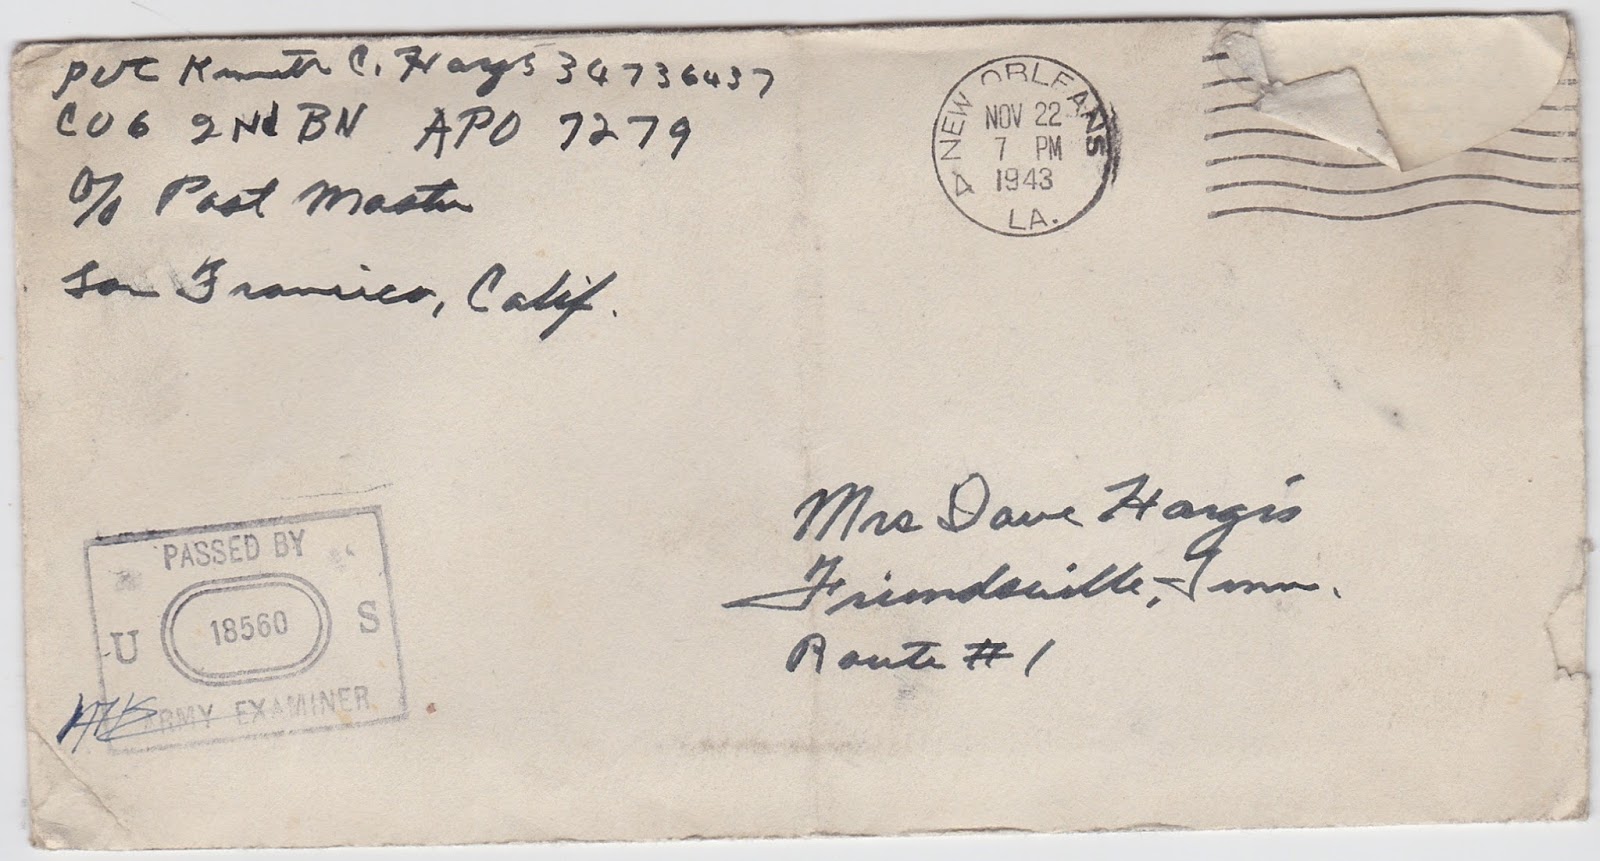 Pvt Kenneth C. Hargis 34736437
CO 6 2Nd BN APO 7279
c/o Post Master
San Francisco, Calif.
NEW ORLEANS
NOV 22
7 PM
1943
LA.
Mrs Dave Hargis
Friendsville, Tenn.
Route #1
PASSED BY
U 18560 S
ARMY EXAMINER